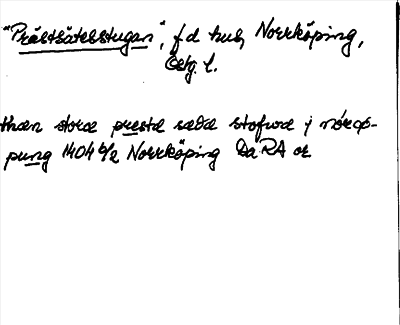 "Prästsätesstugan", f d hus, Norrköping,
Östg. l.
then stora presta sæta stofwa j nørcø-
pung 1404 6/2 Norrköping Da RA or